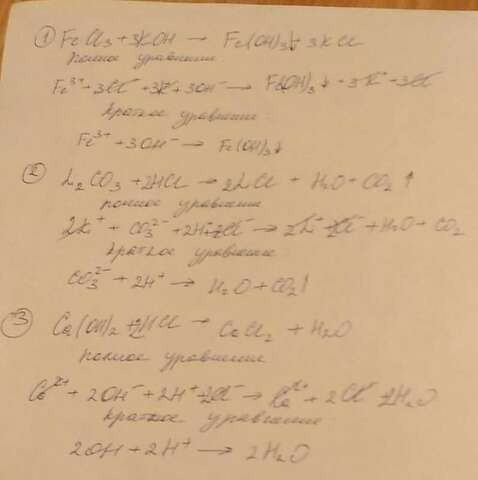 ① FeCl₃ + 3KOH → Fe(OH)₃↓ + 3KCl
Полное уравнение:
Fe³⁺ + 3Cl⁻ + 3K⁺ + 3OH⁻ → Fe(OH)₃↓ + 3K⁺ + 3Cl⁻
Краткое уравнение:
Fe³⁺ + 3OH⁻ → Fe(OH)₃↓
② Li₂CO₃ + 2HCl → 2LiCl + H₂O + CO₂↑
полное уравнение
2Li⁺ + CO₃²⁻ + 2H⁺ + 2Cl⁻ → 2Li⁺ + 2Cl⁻ + H₂O + CO₂
краткое уравнение
CO₃²⁻ + 2H⁺ → H₂O + CO₂↑
③ Ca(OH)₂ + 2HCl → CaCl₂ + H₂O
полное уравнение
Ca²⁺ + 2OH⁻ + 2H⁺ + 2Cl⁻ → Ca²⁺ + 2Cl⁻ + 2H₂O
краткое уравнение
2OH + 2H⁺ → 2H₂O